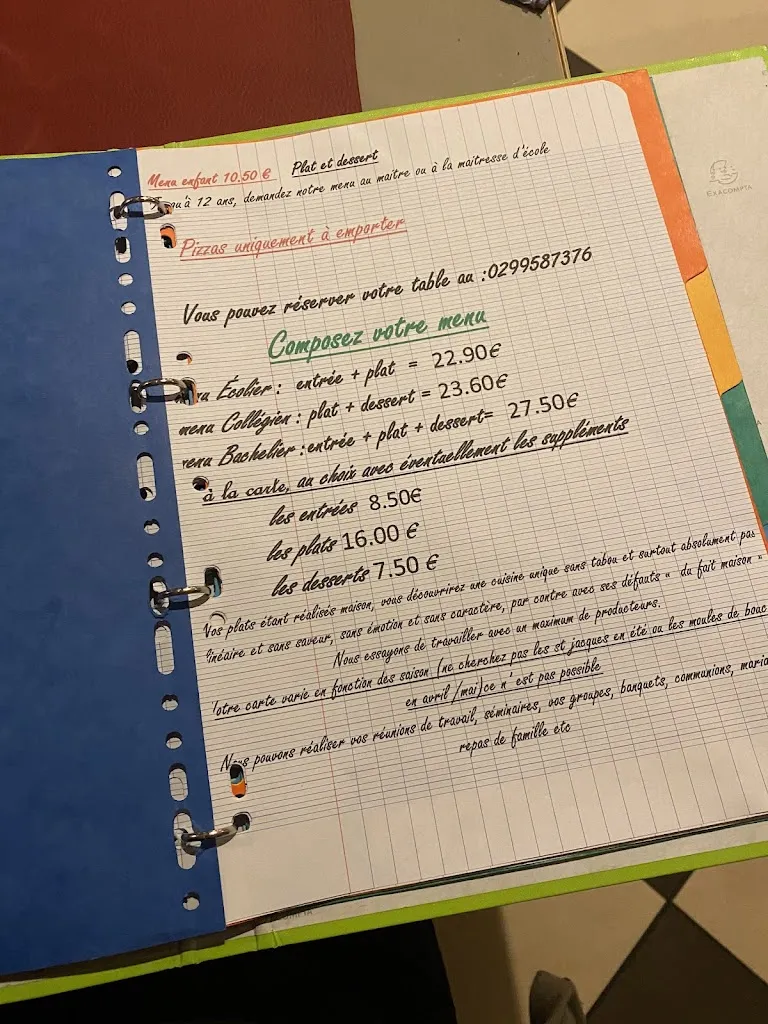 Menu enfant 10.50 € Plat et dessert
qu'à 12 ans, demandez notre menu au maitre ou à la maitresse d'école
Pizzas uniquement à emporter
Vous pouvez réserver votre table au :0299587376
Composez votre menu
nu Écolier : entrée + plat = 22.90€
menu Collégien : plat + dessert = 23.60€
menu Bachelier : entrée + plat + dessert= 27.50€
à la carte, au choix avec éventuellement les suppléments
les entrées 8.50€
les plats 16.00 €
les desserts 7.50 €
Vos plats étant réalisés maison, vous découvrirez une cuisine unique sans tabou et surtout absolument pas
linéaire et sans saveur, sans émotion et sans caractère, par contre avec ses défauts « du fait maison »
Nous essayons de travailler avec un maximum de producteurs.
otre carte varie en fonction des saison (ne cherchez pas les st jacques en été ou les moules de bouc
en avril /mai)ce n'est pas possible
Nous pouvons réaliser vos réunions de travail, séminaires, vos groupes, banquets, communions, maria
repas de famille etc
EXACOMPTA